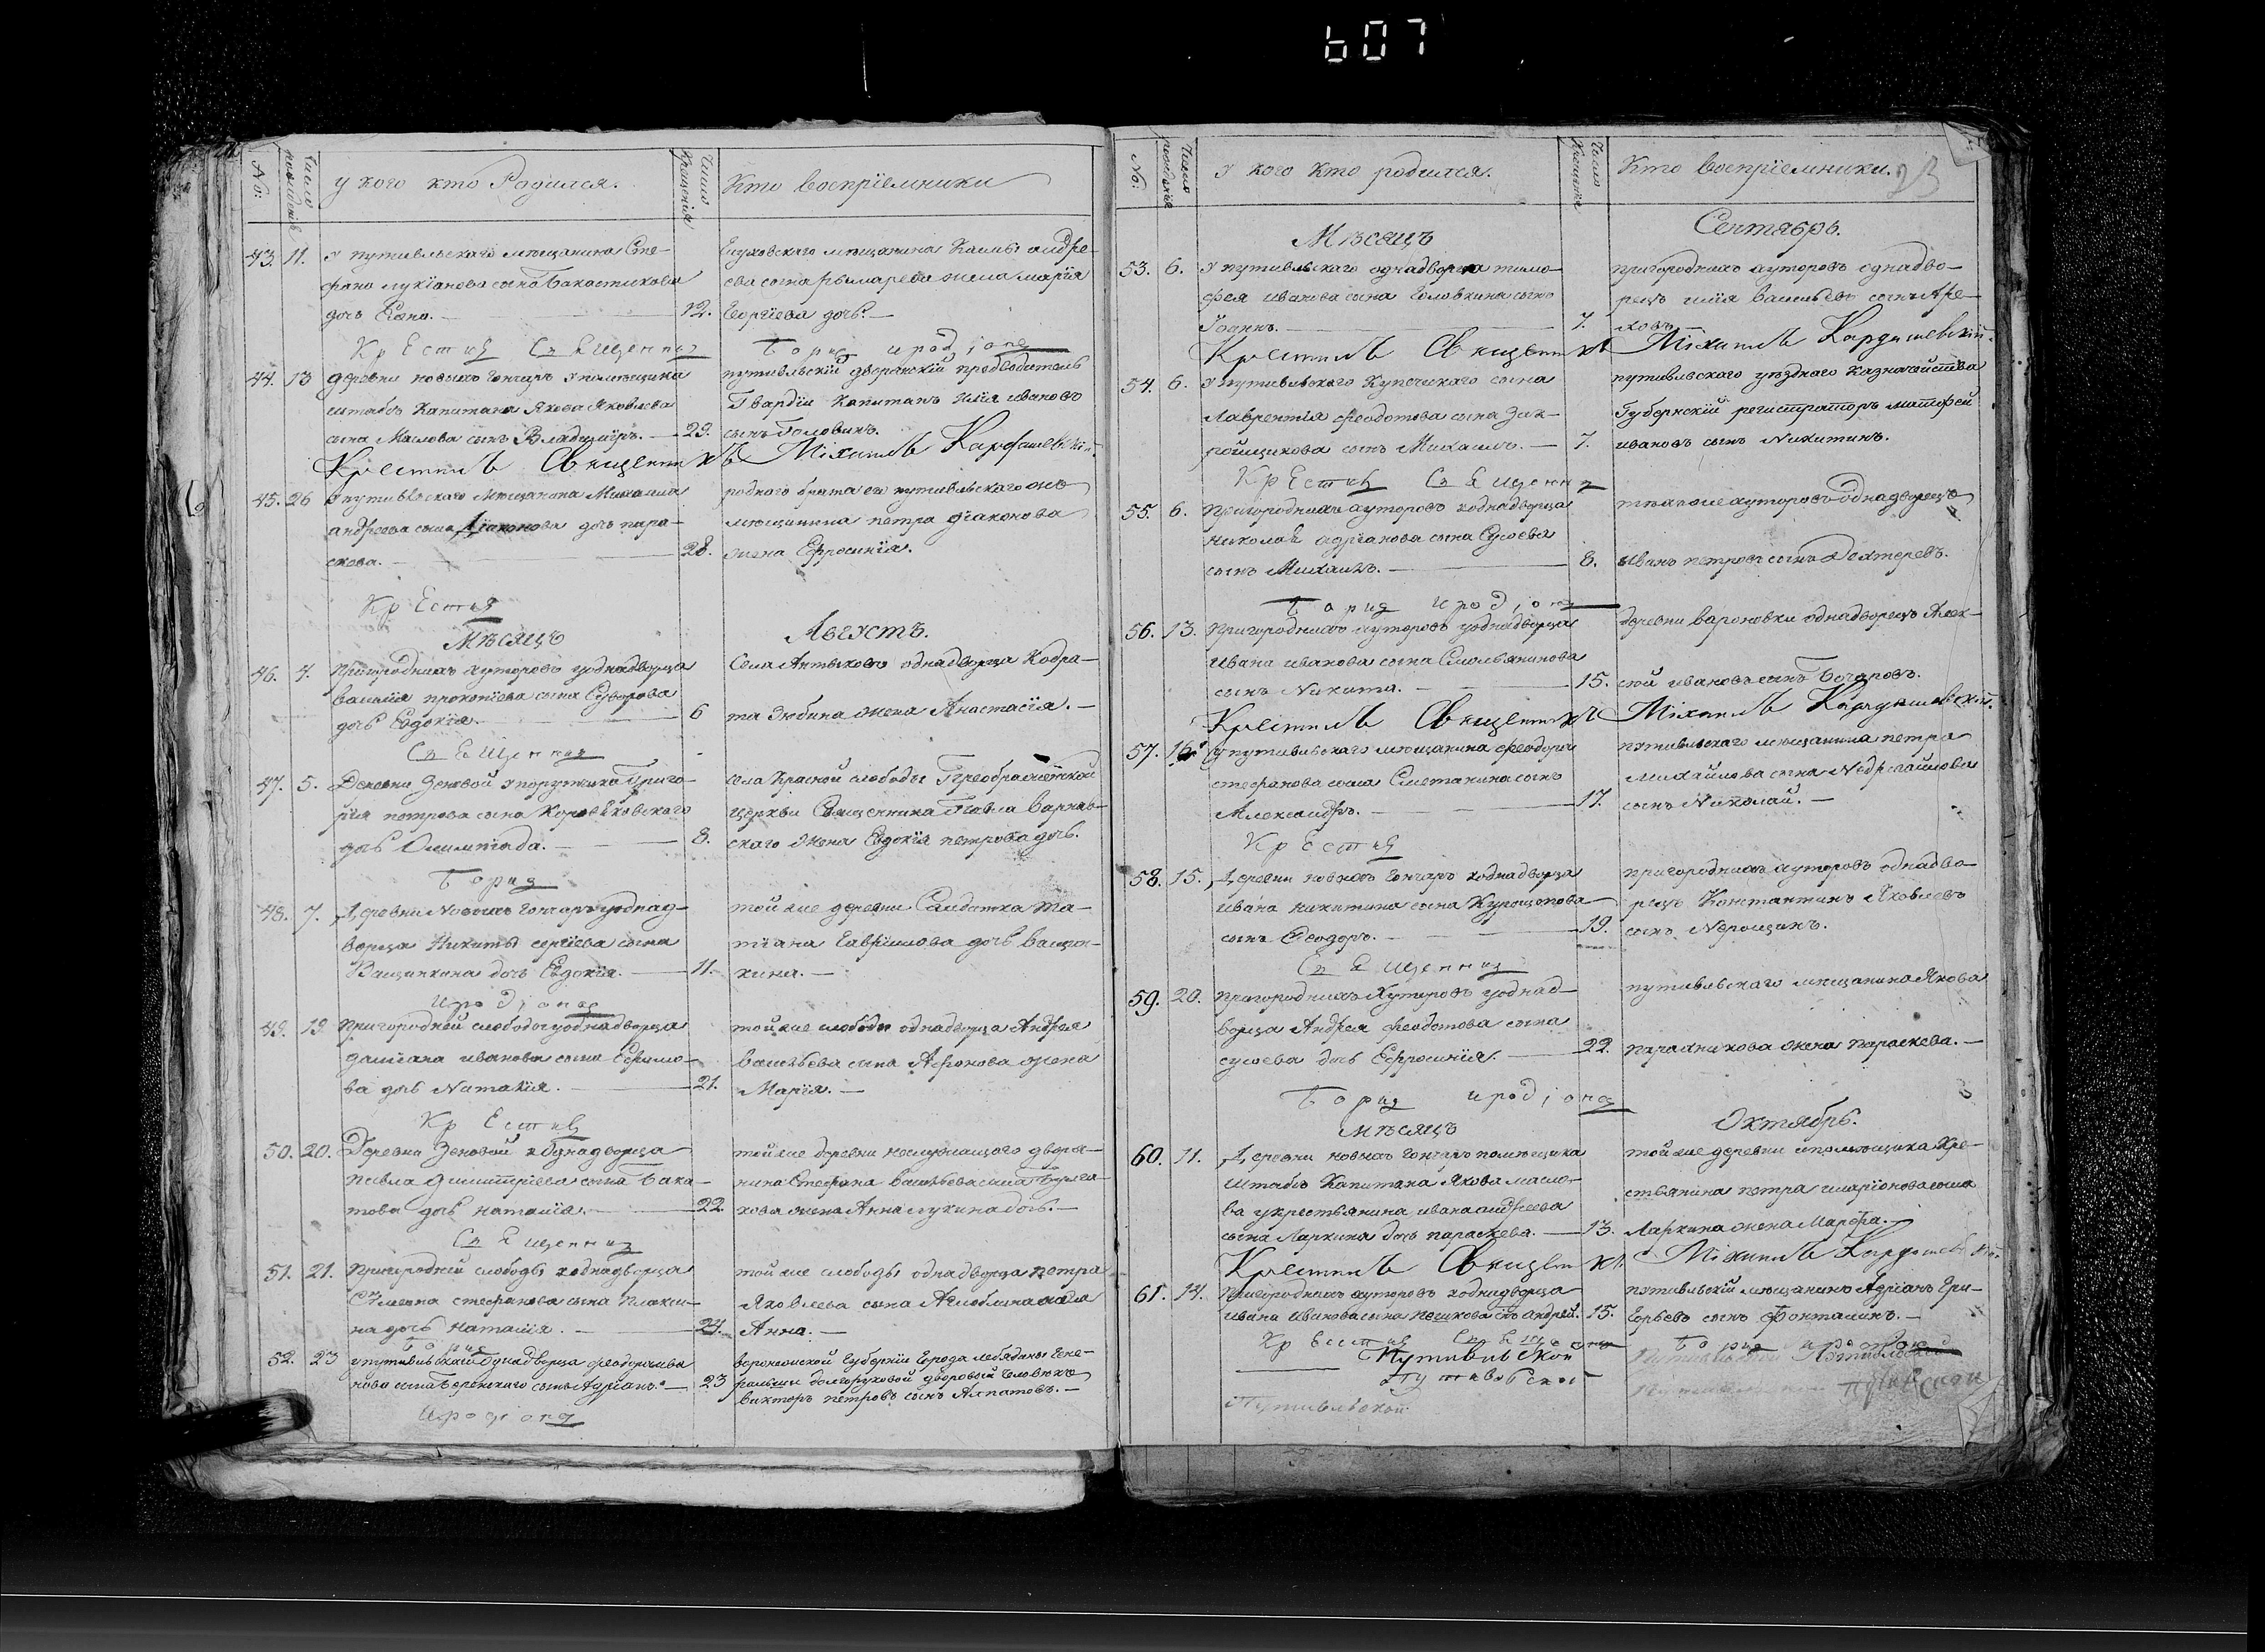 607
№:
Число рожденiя
У кого кто Родился.
Число Крещенiя
Кто воспрiемники
43. 11. У путивльскаго мещанина Сте-
фана лукiанова сына
дочь Елена. — 12.
Глуховскаго мещанина
ева сына рымарева жена марiя
Георгiева дочь. —
Крестил Священник Борис иродiонов
44. 13 Деревни новыхъ гончаръ у помещика
штабсъ Капитана Якова Яковлева
сына Маслова сынъ Владимiръ. — 29.
путивльскiй дворянскiй предводитель
Гвардiи Капитанъ Илiя ивановъ
сынъ Головинъ.
Крестилъ Священникъ Мiхаилъ Кардашевскiй.
45. 26 У путивльскаго Мещанина Михаила
андреева сына Дiаконова дочь пара-
скева. — 28.
роднаго брата ея путивльскаго же
мещанина петра дiаконова
жена Ефросинiя.
Крестил
Месяцъ Августъ.
46. 4. Пригородныхъ хуторовъ у однадворца
василiя прокопiева сына Суворова
дочь Евдокiя. — 6
Села Антыковъ однадворца Кодра-
та Зюбина жена Анастасiя. —
Священник
47. 5. Деревни Зеновой у порутчика Григо-
рiя петрова сына
дочь Олимпiада. — 8.
села Красной слободы Преображенской
церкви Священника Павла Варнав-
скаго жена Евдокiя петрова дочь.
Борис
48. 7. Деревни Новыхъ Гончаръ у однад-
ворца Никиты сергiева сына
Ващинкина дочь Евдокiя. — 11.
той же деревни Салдатка та-
тiана Гаврiилова дочь ващин-
кина. —
иродiонов
49. 19 Пригородней слободы у однадворца
дамiана иванова сына Ефимо-
ва дочь Наталiя. — 21.
той же слободы однадворца Андрея
васильева сына Афонова жена
Марiя. —
Крестил
50. 20. Деревни Зеновой у однадворца
павла димитрiева сына Бака-
това дочь наталiя. — 22.
той же деревни неслужащаго дворя-
нина Стефана васильева сына
жена Анна лукина дочь. —
Священник
51. 21. Пригородней слободы у однадворца
Симеона стефанова сына плакси-
на дочь наталiя. — 24.
той же слободы однадворца петра
Яковлева сына жена
Анна. —
Борис
52. 23 у путивльскаго однадворца феодора
сына сынъ Адрiанъ. — 23
воронежской Губернiи Города лебедяны Гене-
ральши долгоруковой дворовый человекъ
викторъ петровъ сынъ Алпатовъ. —
иродiонов
№:
Число рожденiя
У кого кто родился.
Число Крещенiя
Кто воспрiемники.
23
Месяцъ Сентябрь.
53. 6. У путивльскаго однадворца тимо-
фея иванова сына Головкина сынъ
Iоаннъ. — 7.
пригородныхъ хуторовъ однадво-
рецъ илiя васильевъ сынъ Аре-
ховъ
Крестилъ Священникъ Мiхаилъ Кардашевскiй.
54. 6. У путивльскаго Купеческаго сына
Лаврентiя феодотова сына
сынъ Михаилъ. — 7.
путивльскаго уезднаго Казначейства
Губернскiй регистраторъ матфей
ивановъ сынъ Никитинъ.
Крестил Священник
55. 6. Пригородныхъ хуторовъ у однадворца
николая адрiанова сына Сусоева
сынъ Михаилъ. — 8.
техъ же хуторовъ однадворецъ
Иванъ петровъ сынъ Дехтеревъ.
Борис иродiон
56. 13. Пригородныхъ хуторовъ у однадворца
ивана иванова сына Смольянинова
сынъ Никита. — 15.
деревни вароновки однадворецъ Алек-
сей ивановъ сынъ Бочаровъ.
Крестилъ Священникъ Мiхаилъ Кардашевскiй.
57. 16 У путивльскаго мещанина феодора
стефанова сына Сметанина сынъ
Александръ. — 17.
путивльскаго мещанина петра
Михайлова сына
сынъ Николай. —
Крестил
58. 15. Деревни новыхъ Гончаръ у однадворца
ивана никитина сына
сынъ Феодоръ. — 19.
пригородныхъ хуторовъ однадво-
рецъ Константинъ Яковлевъ
сынъ
Священник
59. 20. Пригородныхъ Хуторовъ у однад-
ворца Андрея феодотова сына
сусоева дочь Ефросинiя. — 22.
путивльскаго мещанина Якова
жена параскева. —
Борис иродiонов
месяцъ Октябрь.
60. 11. Деревни новыхъ Гончаръ помещика
Штабсъ Капитана Якова масло-
ва у крестьянина ивана андреева
сына Ларкина дочь параскева. — 13.
той же деревни и помещика Кре-
стьянина петра иларiонова сына
Ларкина жена Марфа. —
Крестилъ Священникъ Мiхаилъ Кардашевскiй.
61. 14. Пригородныхъ хуторовъ у однадворца
ивана Иванова сына пешкова сынъ андрей. 15.
путивльскiй мещанинъ Адрiанъ Гри-
горьевъ сынъ Фонталинъ. —
Крестил Священник Борис иродiон
Путивльской
Путивльской
Путивльской